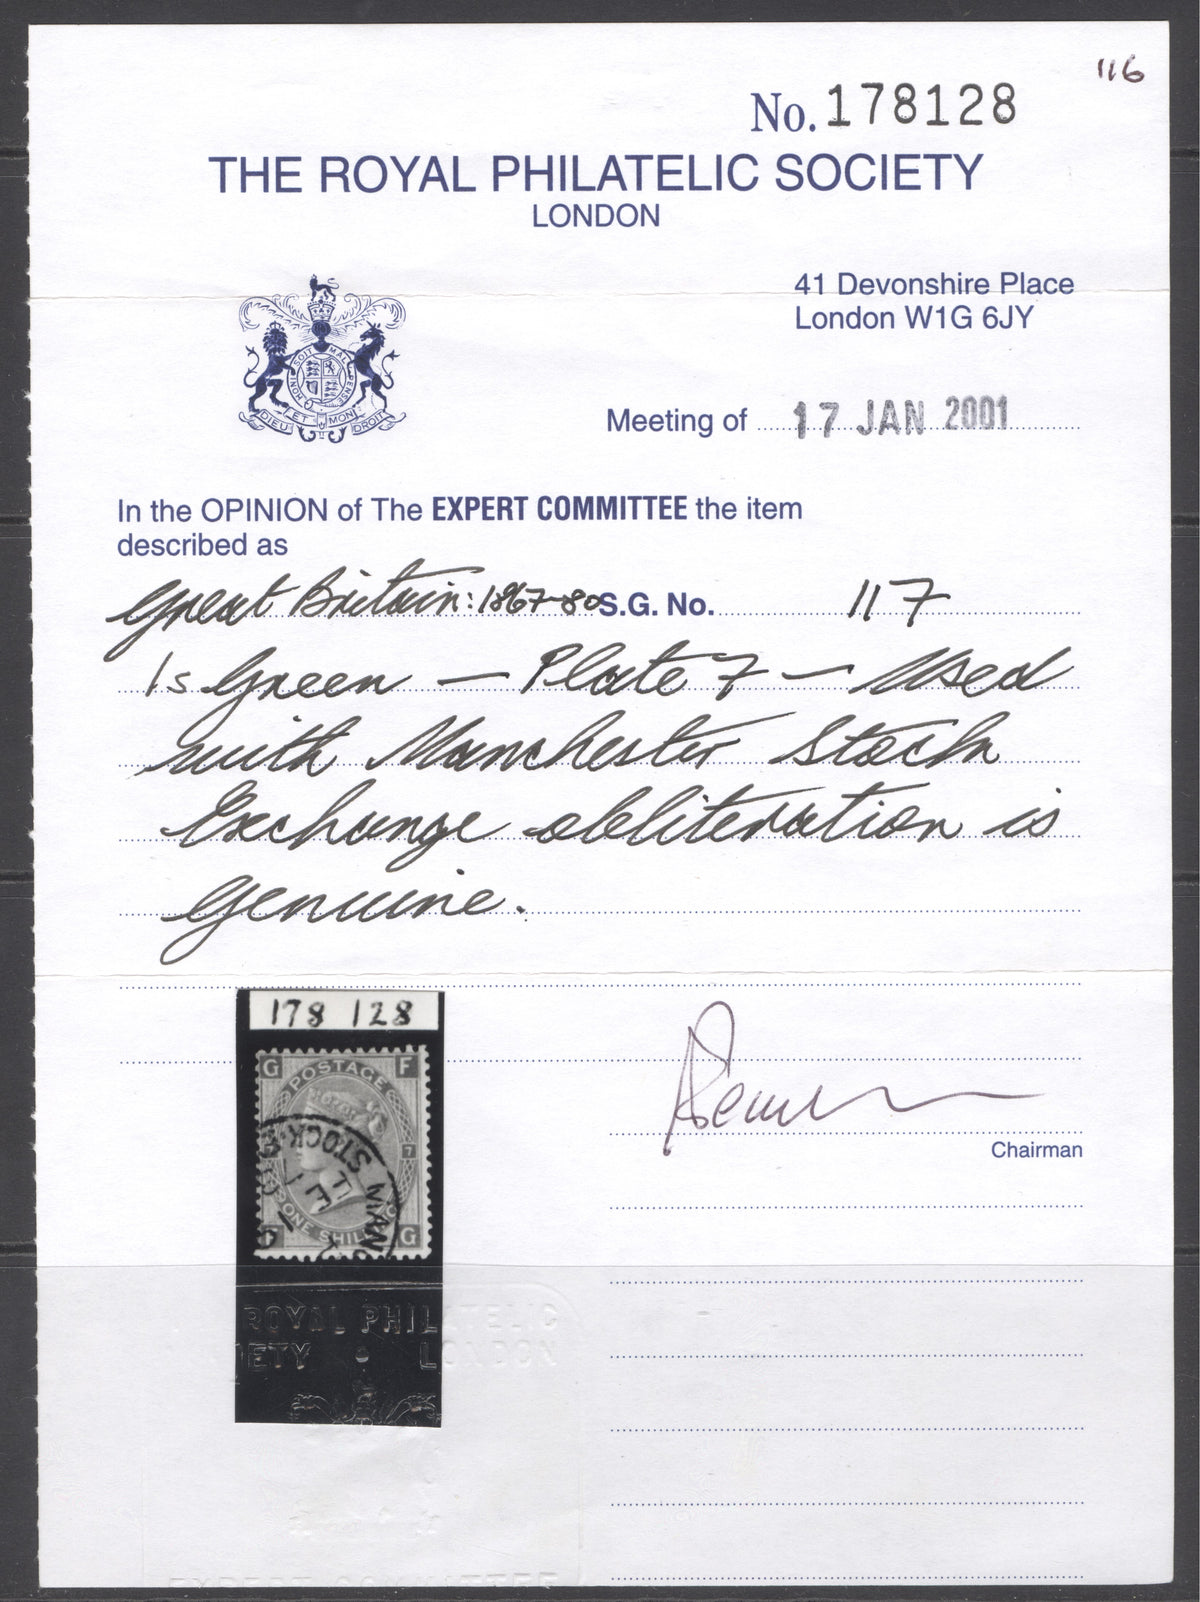 116
No. 178128
THE ROYAL PHILATELIC SOCIETY
LONDON
41 Devonshire Place
London W1G 6JY
SOIT MAL PENSE
HONI
DIEU ET MON DROIT
Meeting of 17 JAN 2001
In the OPINION of The EXPERT COMMITTEE the item
described as
Great Britain: 1867-80 S.G. No. 117
1s Green — Plate 7 — Used
with Manchester Stock
Exchange obliteration is
genuine.
178 128
G F
POSTAGE
7
STOCK
MANC
ONE SHIL
G
Chairman
ROYAL PHILATELIC
IETY • LONDON
EXPERT COMMITTEE